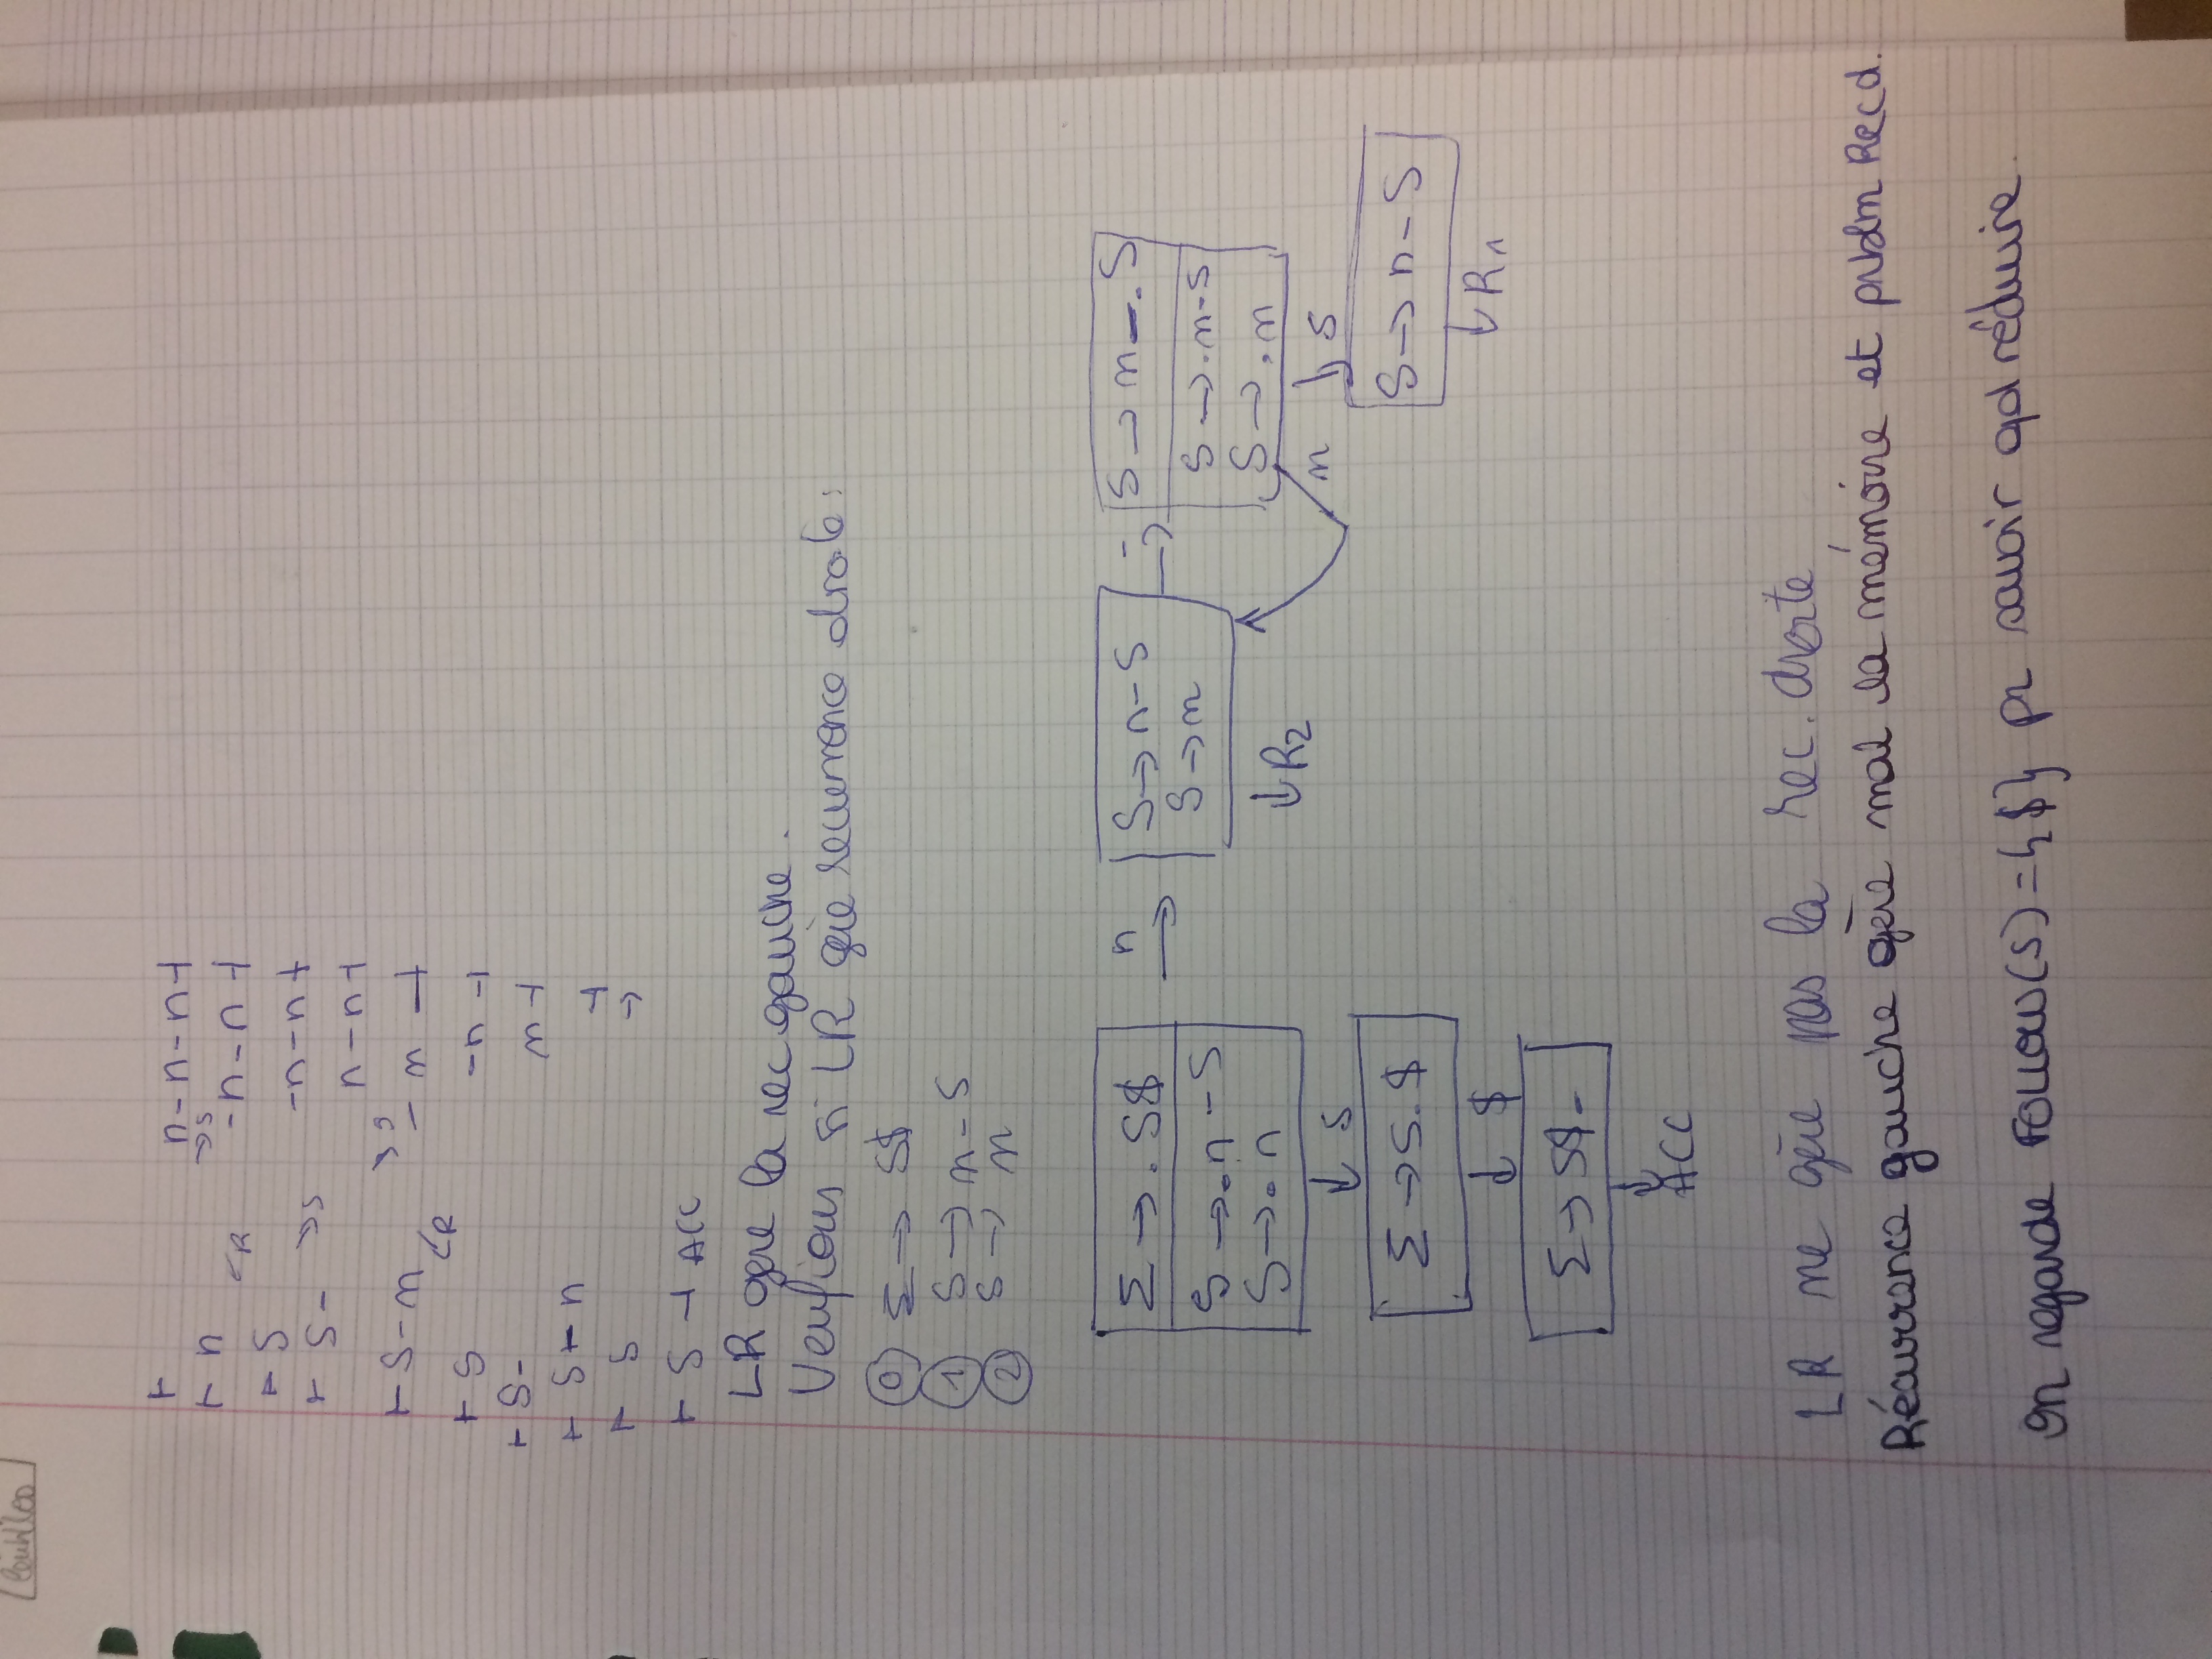 ⊢ n-n-n⊣
→S
⊢ n -n-n⊣
←R
⊢ S -n-n⊣
⊢ S- →S n-n⊣
→S
⊢ S-n -n⊣
←R
⊢ S -n⊣
⊢ S- n⊣
⊢ S-n ⊣
⊢ S →
⊢ S ⊣ ACC
LR gère la rec gauche.
Verifions si LR gère recurrence droite:
⓪ Σ → S$
① S → n-S
② S → n
Σ → .S$
S → .n-S
S → .n
n
S → n-S
S → n
-
S → n-.S
S → .n-S
S → .n
R2
n
S
S
Σ → S.$
S → n-S
$
R1
Σ → S$.
ACC
LR ne gère pas la rec. droite
Récurrence gauche gère mal la mémoire et problm Rec d.
On regarde Follow(S)={$} pr savoir qd réduire.